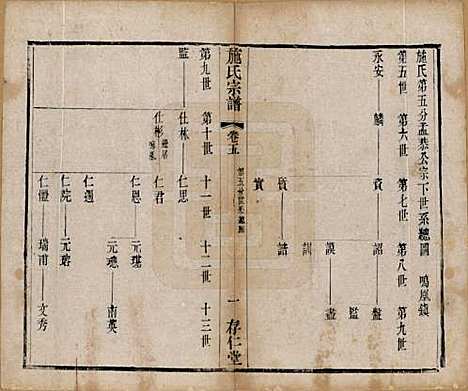 施氏第五分孟恭公宗下世系總圖 鳴凰鎮
第五世 第六世 第七世 第八世 第九世
永安 鱗 資 詔 盤
監
謨 盡
訓
質 誥
實
施氏宗譜 卷五 一 存仁堂
第九世 第十世 十一世 十二世 十三世
監 仕林 仁思
仕彬 仁君
仁恩 元瓏
元璁 南英
仁遇
仁院 元瑢
仁禮 瑞甫 文秀